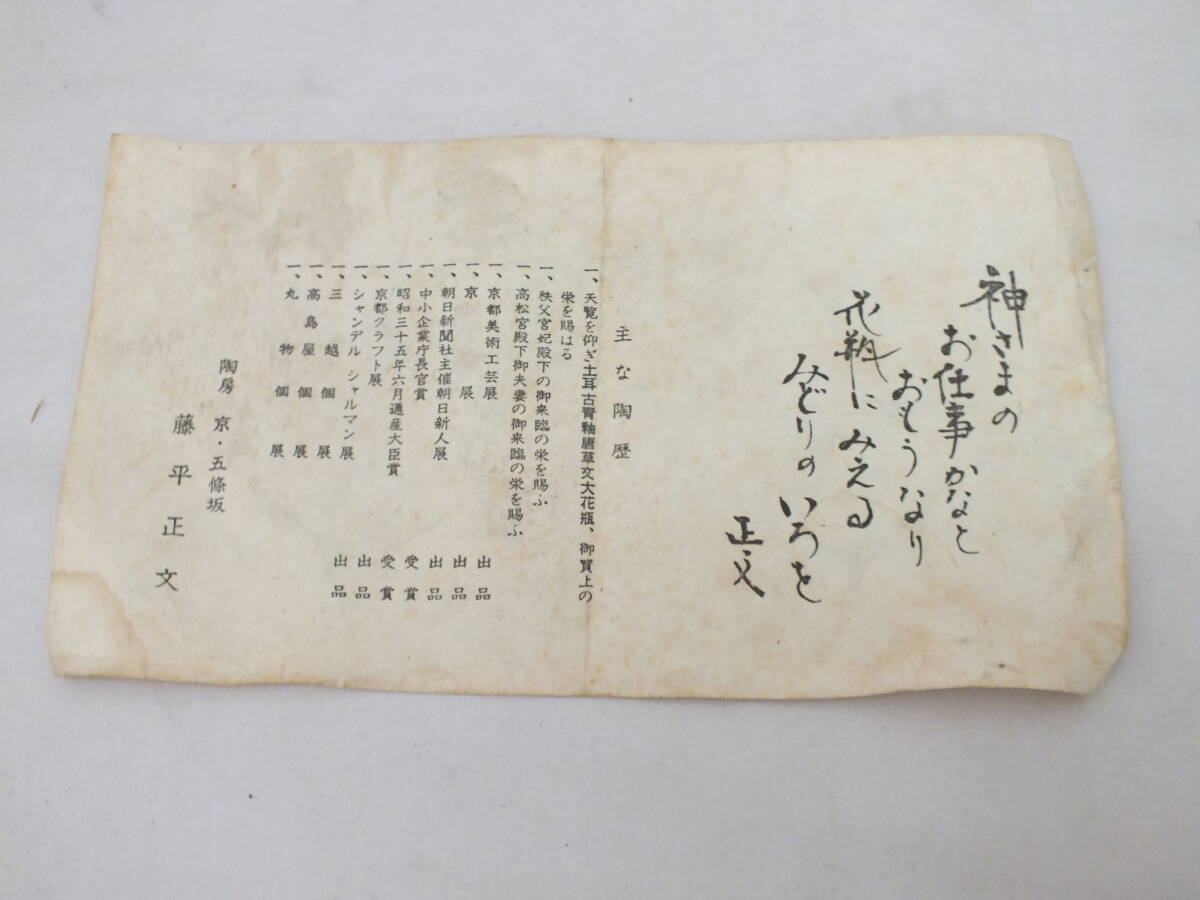 神さまの
お仕事かなと
おもうなり
花瓶にみえる
みどりのいろを
正文
主な陶歴
一、天覧を仰ぎ土耳古青釉唐草文大花瓶、御買上の
栄を賜はる
一、秩父宮妃殿下の御来臨の栄を賜ふ
一、高松宮殿下御夫妻の御来臨の栄を賜ふ
一、京都美術工芸展 出品
一、京展 出品
一、朝日新聞社主催朝日新人展 出品
一、中小企業庁長官賞 受賞
一、昭和三十五年六月通産大臣賞 受賞
一、京都クラフト展 出品
一、シャンデル シャルマン展 出品
一、三越個展
一、高島屋個展
一、丸物個展
陶房 京・五條坂
藤平正文